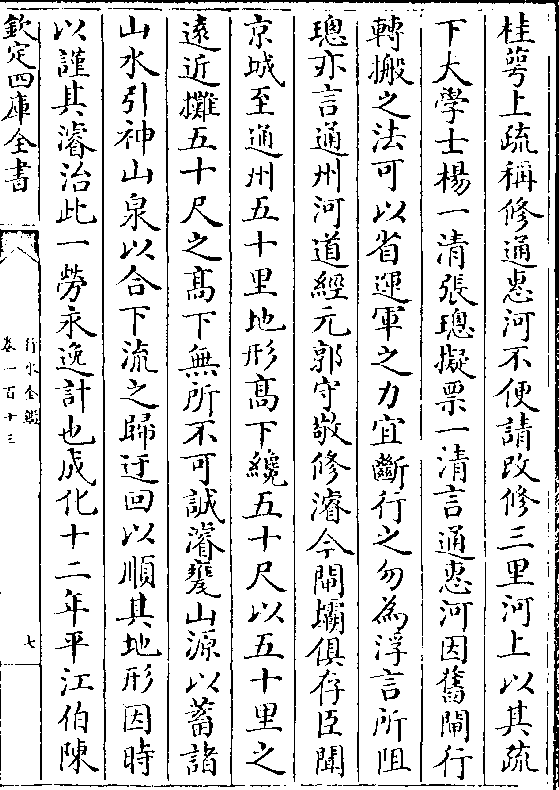 桂萼上疏稱修通惠河不便請改修三里河上以其疏
下大學士楊一清張璁擬票一清言通惠河因舊閘行
轉搬之法可以省運軍之力宜斷行之勿為浮言所阻
璁亦言通州河道經元郭守敬修濬今閘壩俱存臣聞
京城至通州五十里地形高下纔五十尺以五十里之
遠近攤五十尺之高下無所不可誠濬甕山源以蓄諸
山水引神山泉以合下流之歸迂回以順其地形因時
以謹其濬治此一勞永逸計也成化十二年平江伯陳
欽定四庫全書
行水金鑑
卷一百十三
七